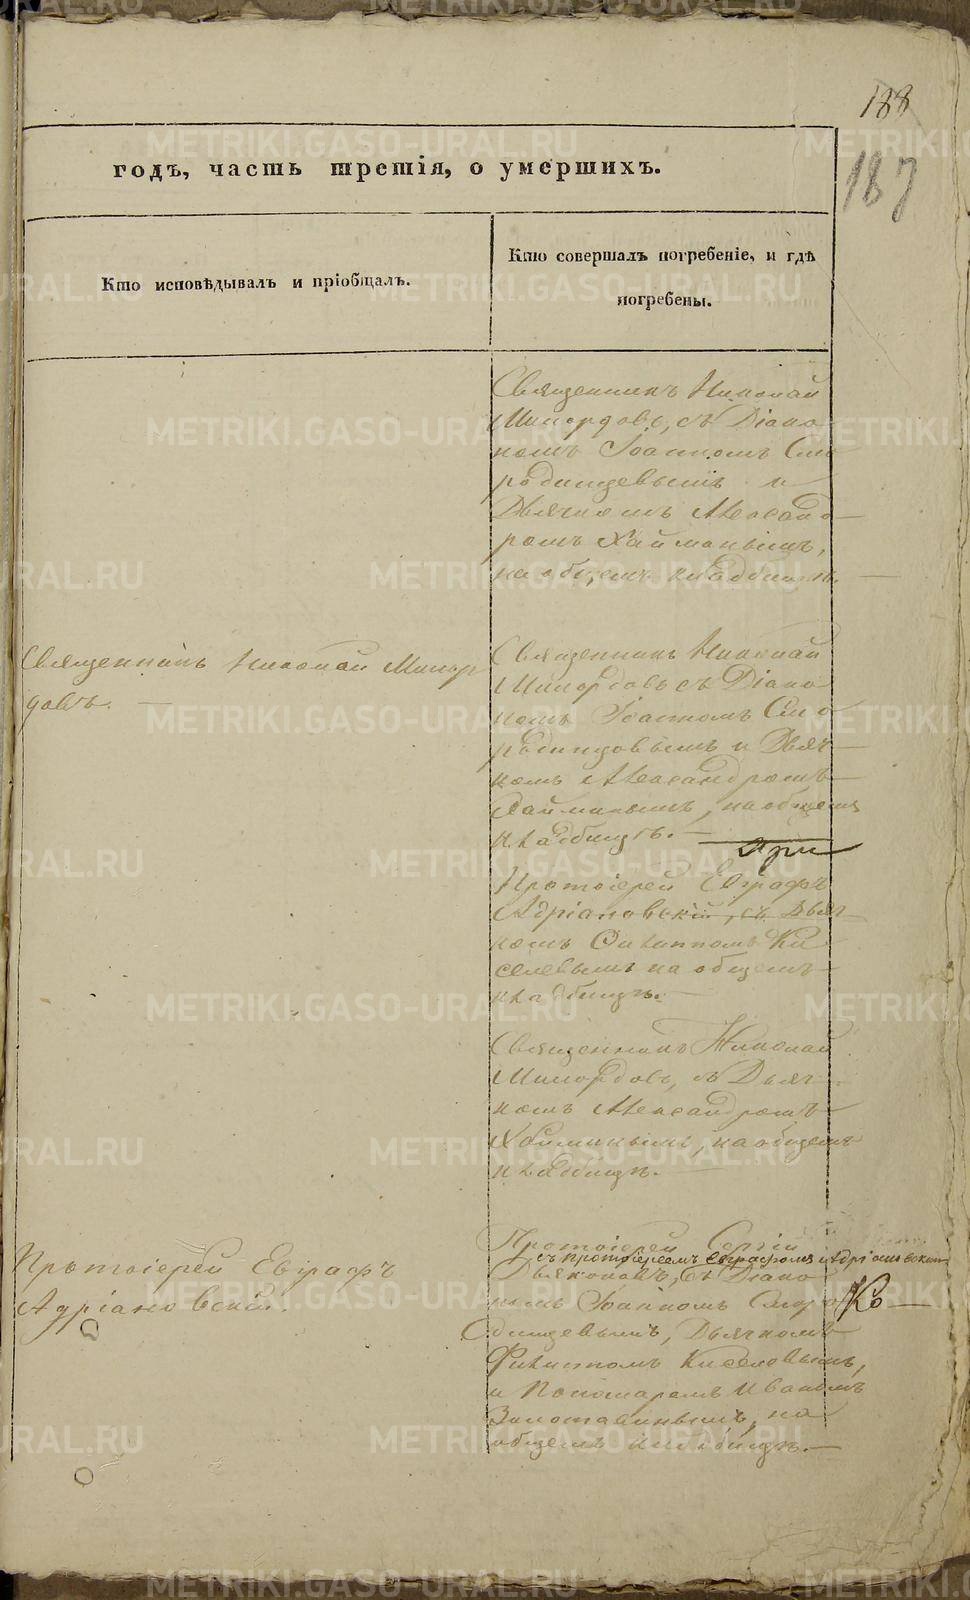 188
187
годъ, часть третія, о умершихъ.
Кто исповѣдывалъ и пріобщалъ.
Кто совершалъ погребеніе, и гдѣ
погребены.
Священникъ Николай
съ Діако
номъ Іоанномъ Смо
родинцевымъ и
Дьячкомъ Александ
ромъ Хайминымъ,
на общемъ кладбищѣ.
Священникъ Николай
Священникъ Николай
съ Діако
довъ.
номъ Іоанномъ Смо
родинцовымъ и Дьяч
комъ Александромъ
Хайминымъ, на общемъ
кладбищѣ.
Протоіерей Евграфъ
Адріановскій, съ Дьяч
комъ Филиппомъ Ки
селевымъ на общемъ
кладбищѣ.
Священникъ Николай
съ Дьяч
комъ Александромъ
Хайминымъ, на общемъ
кладбищѣ.
Протоіерей Евграфъ
Адріановскій.
Протоіерей Сергій
съ протоіереемъ Евграфомъ Адріановским
Дьяконовъ, съ Діако
номъ Іоанномъ Смор
Ко
динцевымъ, Дьячкомъ
Филиппомъ Киселевымъ,
и Пономаремъ Иваномъ
на
общемъ кладбищѣ.
METRIKI.GASO-URAL.RU